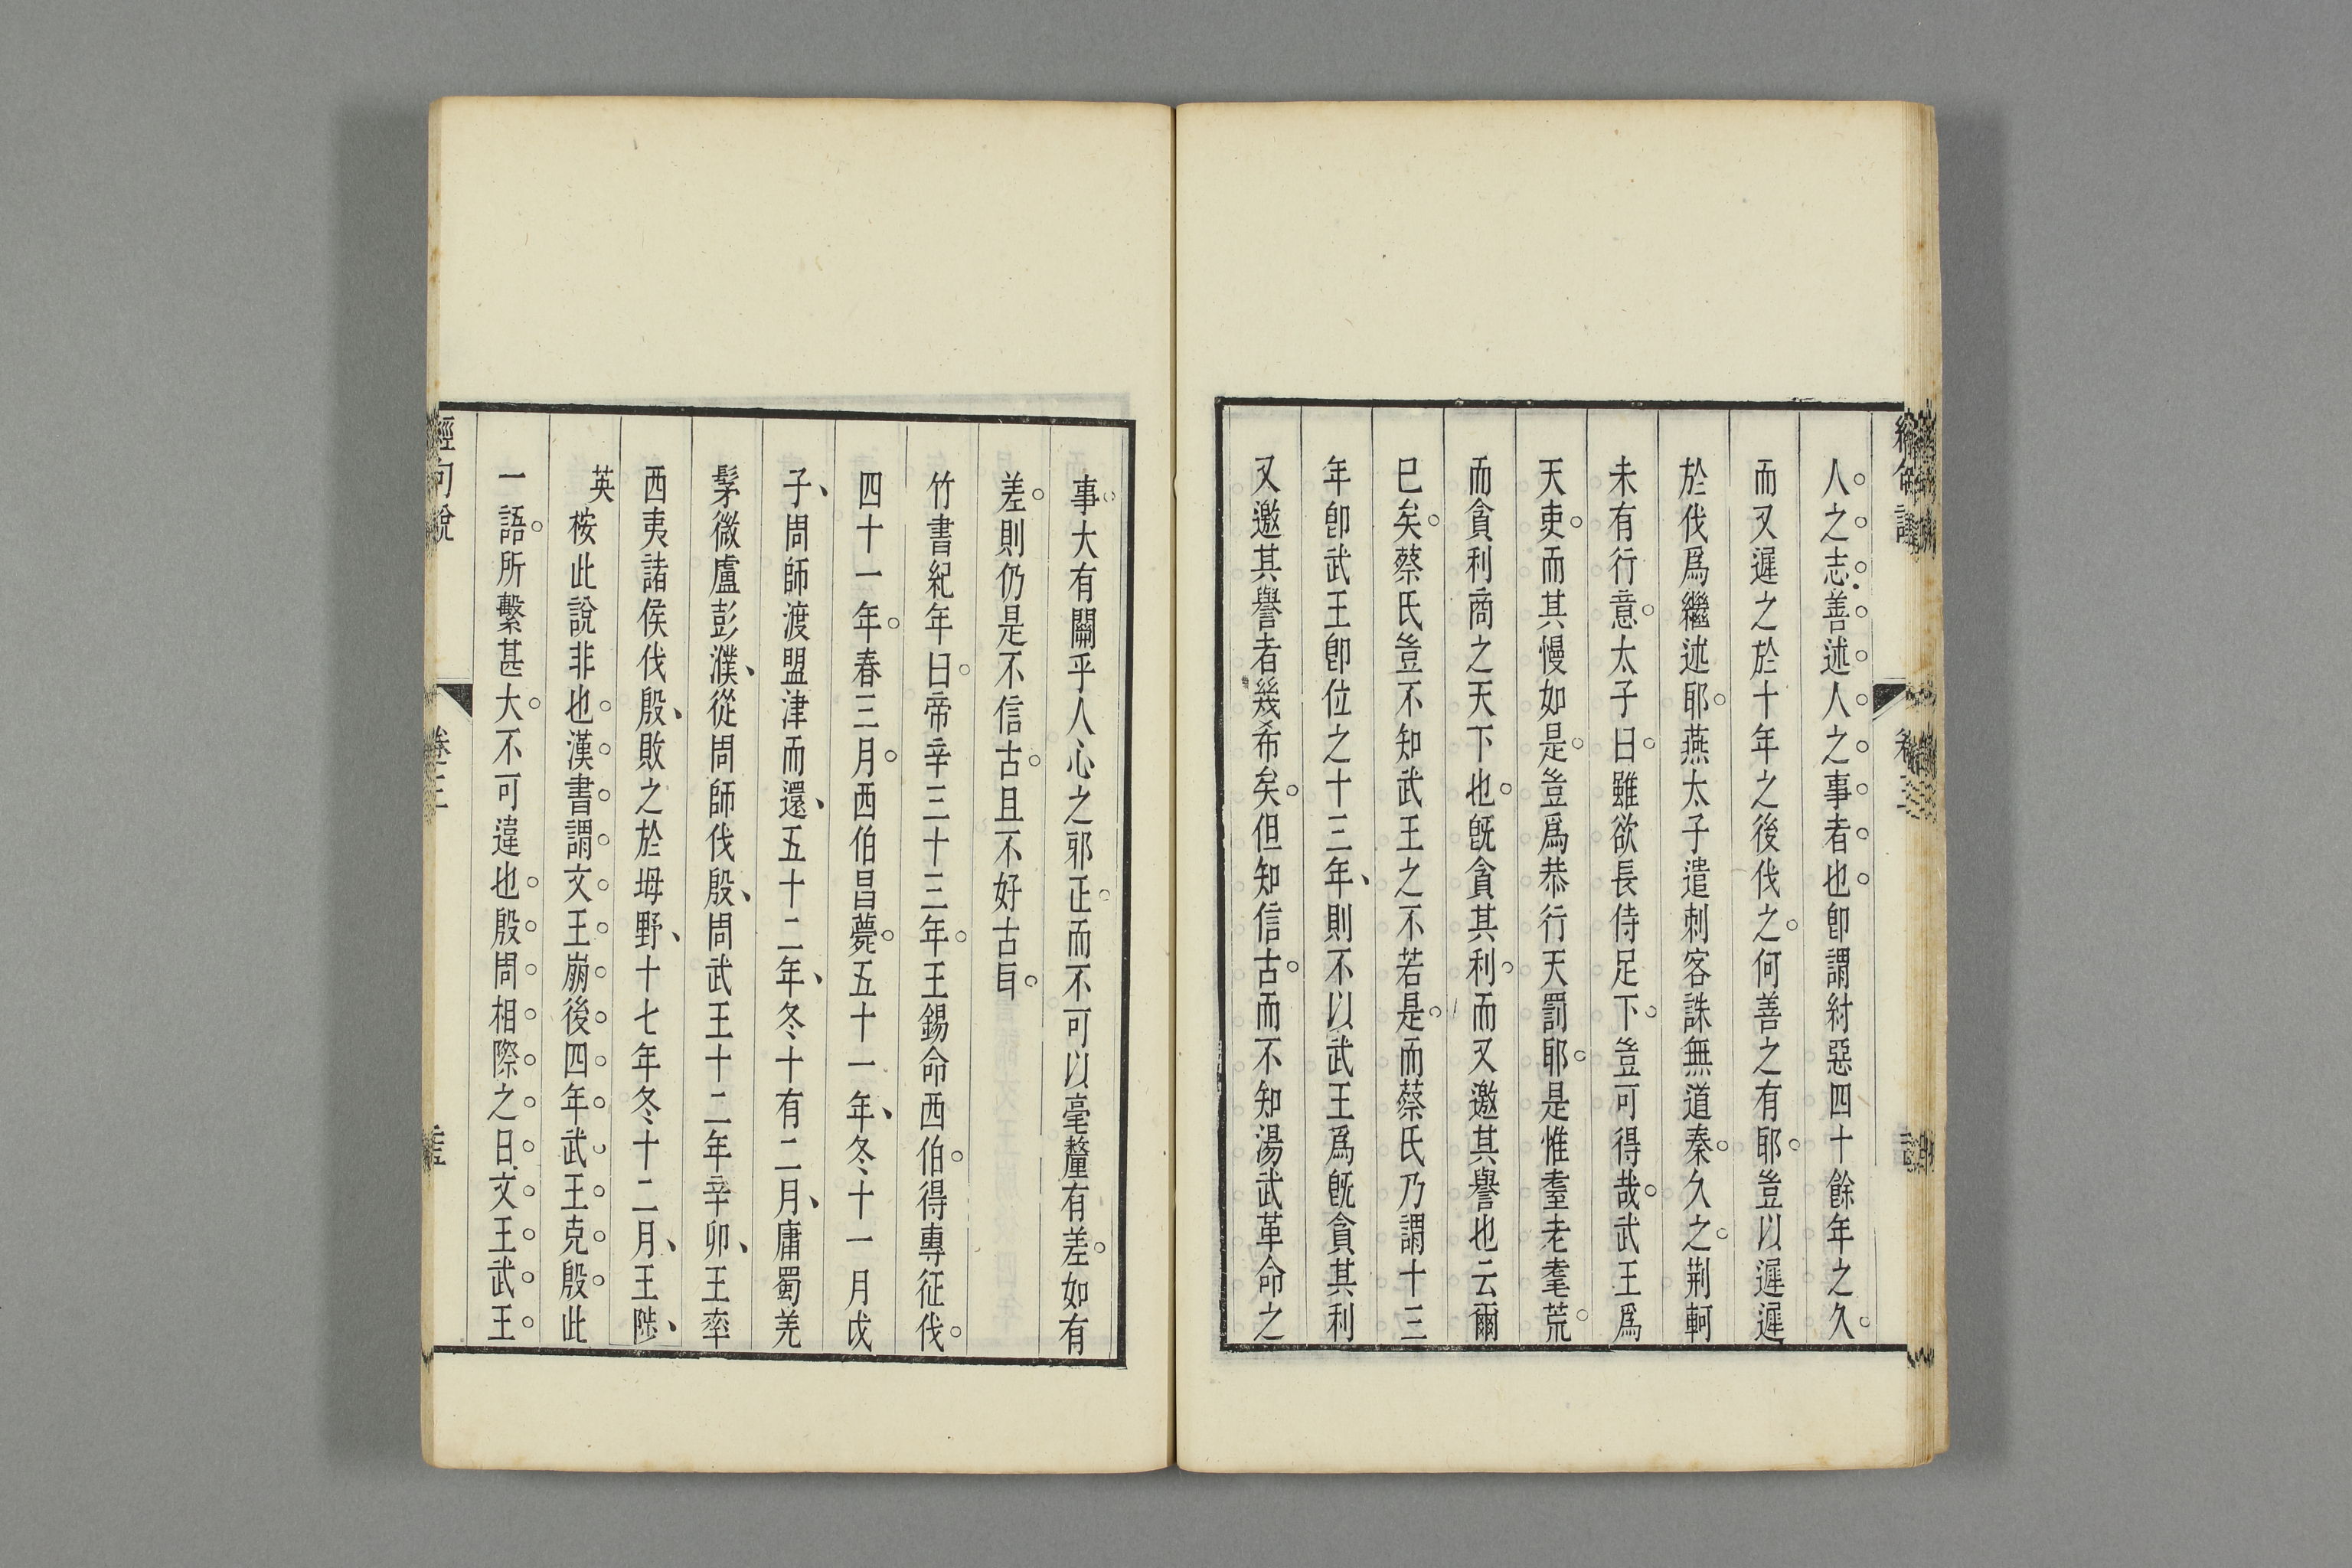 人之志善述人之事者也卽謂紂惡四十餘年之久
而又遲之於十年之後伐之何善之有耶豈以遲遲
於伐爲繼述耶燕太子遣刺客誅無道秦久之荆軻
未有行意太子曰雖欲長侍足下豈可得哉武王爲
天吏而其慢如是豈爲恭行天罰耶是惟耋老耄荒
而貪利商之天下也旣貪其利而又邀其譽也云爾
已矣蔡氏豈不知武王之不若是而蔡氏乃謂十三
年卽武王卽位之十三年則不以武王爲旣貪其利
又邀其譽者幾希矣但知信古而不知湯武革命之
事大有關乎人心之邪正而不可以毫釐有差如有
差則仍是不信古且不好古㠯
竹書紀年曰帝辛三十三年王錫命西伯得專征伐
四十一年春三月西伯昌薨五十一年冬十一月戊
子周師渡盟津而還五十二年冬十有二月庸蜀羌
髳微盧彭濮從周師伐殷周武王十二年辛卯王率
西夷諸侯伐殷敗之於坶野十七年冬十二月王陟
英桉此說非也漢書謂文王崩後四年武王克殷此
一語所繫甚大不可違也殷周相際之日文王武王
經句說 卷三